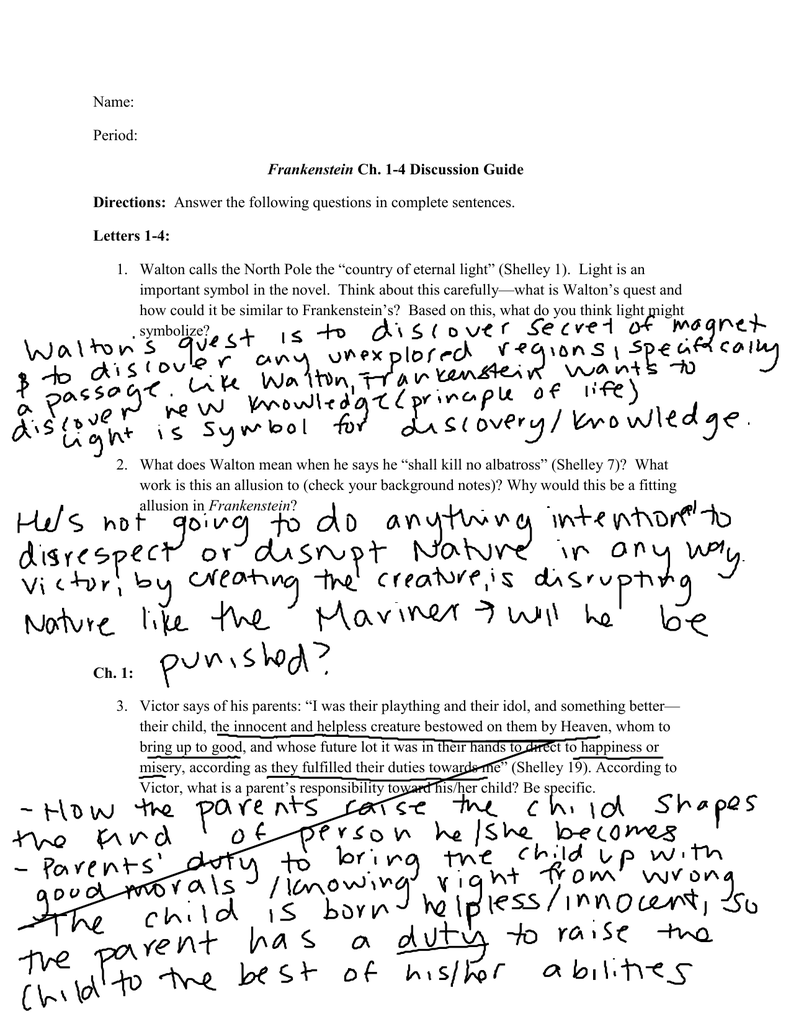 Name:
Period:
Frankenstein Ch. 1-4 Discussion Guide
Directions: Answer the following questions in complete sentences.
Letters 1-4:
1. Walton calls the North Pole the “country of eternal light” (Shelley 1). Light is an
important symbol in the novel. Think about this carefully—what is Walton’s quest and
how could it be similar to Frankenstein’s? Based on this, what do you think light might
symbolize?
Walton's quest is to discover secret of magnet
& to discover any unexplored regions, specifically
a passage. Like Walton, Frankenstein wants to
discover new knowledge (principle of life)
Light is symbol for discovery/knowledge.
2. What does Walton mean when he says he “shall kill no albatross” (Shelley 7)? What
work is this an allusion to (check your background notes)? Why would this be a fitting
allusion in Frankenstein?
He's not going to do anything intentional to
disrespect or disrupt Nature in any way.
Victor, by creating the creature, is disrupting
Nature like the Mariner → will he be
punished?
Ch. 1:
3. Victor says of his parents: “I was their plaything and their idol, and something better—
their child, the innocent and helpless creature bestowed on them by Heaven, whom to
bring up to good, and whose future lot it was in their hands to direct to happiness or
misery, according as they fulfilled their duties towards me” (Shelley 19). According to
Victor, what is a parent’s responsibility toward his/her child? Be specific.
- How the parents raise the child shapes
the kind of person he/she becomes
- Parents' duty to bring the child up with
good morals /knowing right from wrong
- The child is born helpless/innocent, so
the parent has a duty to raise the
child to the best of his/her abilities